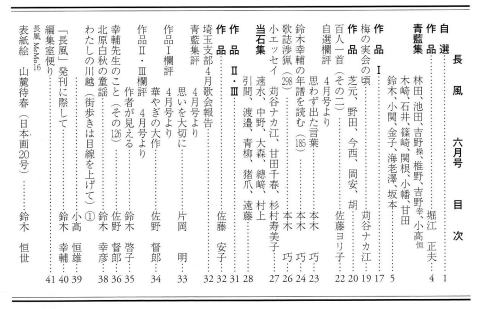 長風 六月号 目次
自選……堀江 正夫 1
作品……4
青藍集
林田、池田、吉野操、椎野、吉野幸、小高恒
木崎、石井、篠崎、関根、小幡、甘田
鈴木、小関、金子、海老澤、坂本……5
作品Ⅰ……17
梅の実会の頃……苅谷ナカ江 19
作品……芝元、野田、今西、岡安、胡 20
百人一首（その二）……佐藤ヨリ子 22
自選欄評 4月号より
思わず出た言葉……本木 巧 23
鈴木幸輔の年譜を読む（185）……本木 巧 24
歌誌渉猟（208）……本木 巧 26
小エッセイ 苅谷ナカ江、甘田千春、杉村寿美子 27
当石集
速水、中野、大森、總﨑、村上
引間、渡邉、青柳、猪爪、遠藤……28
作品Ⅱ・Ⅲ……31
作品……佐藤 安子 32
埼玉支部4月歌会報告……32
青藍集評 4月号より
思いを大切に……片岡 明 33
作品Ⅰ欄評 4月号より
華やぎの大作……佐野 督郎 34
作品Ⅱ・Ⅲ欄評 4月号より
作者が見える……鈴木 啓子 35
幸輔先生のこと（その126）……佐野 督郎 36
北原白秋の童謡……鈴木 幸彦 38
わたしの川越（街歩きは目線を上げて）①
……小高 恒雄 39
「長風」発刊に際して……鈴木 幸輔 40
編集室便り……41
長風 MeMo 16
表紙絵 山籟待春（日本画20号）……鈴木 恒世